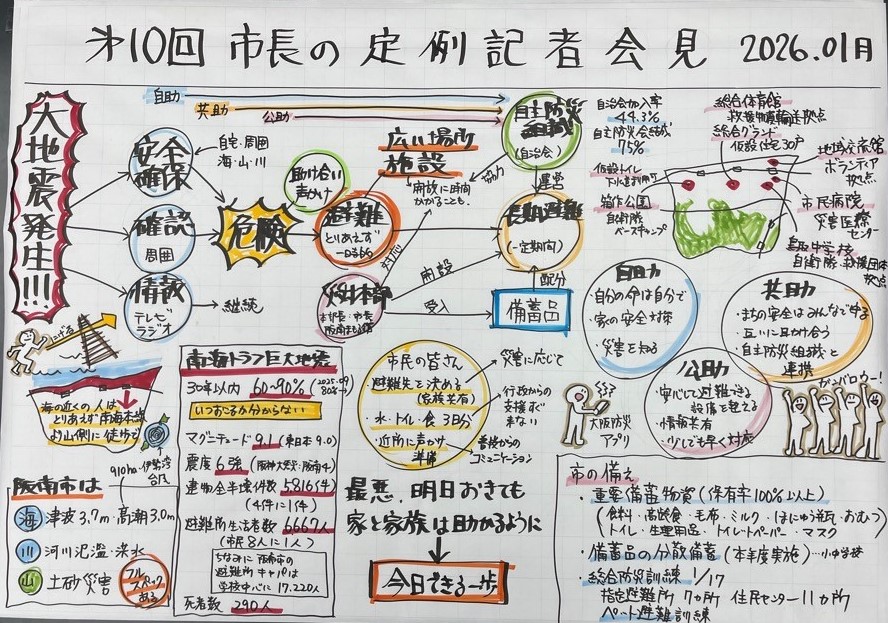 第10回 市長の定例記者会見 2026.01月
自助
共助
公助
大地震発生!!!
安全確保
自宅・周囲
海・山・川
確認
周囲
情報
テレビ
ラジオ
継続
危険
助け合い
声かけ
避難
とりあえず
広い場所
施設
開放に時間
かかることも
災対本部
本部長:市長
対応
開設
受入
協力
自主防災
組織
(自治会)
運営
長期避難
(一定期間)
配分
備蓄品
自治会加入率
44.3%
自主防災会組織
75%
仮設トイレ
箱作公園
自衛隊
ベースキャンプ
総合体育館
救援物資輸送拠点
総合グランド
仮設住宅30戸
地域交流館
ボランティア
拠点
市民病院
災害医療
センター
鳥取中学校
自衛隊・救援団体
拠点
自助力
・自分の命は自分で
・家の安全対策
・災害を知る
共助力
・まちの安全はみんなで守る
・互いに声かけ合う
・自主防災組織と
連携
公助力
・安心して避難できる
設備を整える
・情報共有
・少しでも早く対応
大阪防災
アプリ
がんバロウー!
にげろ
海の近くの人は
とりあえず南海本線
より山側に徒歩で
伊勢湾
台風
910hPa
阪南市は
海 津波3.7m・高潮3.0m
川 河川氾濫・洪水
山 土砂災害
フル
スペック
ある
南海トラフ巨大地震
30年以内 60~90%(2025.09
いつおこるか分からない
マグニチュード 9.1(東日本9.0)
震度 6強(阪神大震災:阪南4)
建物全半壊件数 5816(件)
(4件に1件)
避難所生活者数 6,667人
(市民8人に1人)
ちなみに阪南市の
避難所キャパは
学校中心に17.220人
死者数 290人
市民の皆さん
・避難先を決める
(家族共有)
・水・トイレ・食3日分
・近所に声かけ
準備
災害に応じて
行政からの
支援すぐ
来ない
普段からの
コミュニケーション
最悪、明日おきても
家と家族は助かるように
今日できる一歩
市の備え
・重要備蓄物資(保有率100%以上)
(食料・高齢食・毛布・ミルク・ほにゅう瓶・おむつ
トイレ・生理用品・トイレットペーパー・マスク)
・備蓄品の分散備蓄(本年度実施)…小中学校
・総合防災訓練 1/17
指定避難所 7ヵ所 住民センター11ヵ所
ペット避難訓練